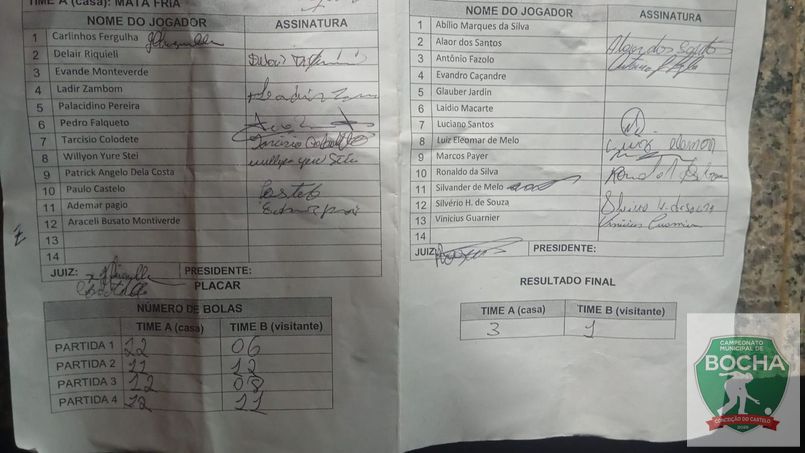 TIME A (casa): MATA FRIA
NOME DO JOGADOR ASSINATURA
1 Carlinhos Fergulha
2 Delair Riquieli
3 Evande Monteverde
4 Ladir Zambom
5 Palacidino Pereira
6 Pedro Falqueto
7 Tarcisio Colodete Tarcisio Colodete
8 Willyon Yure Stei willyon yure Stei
9 Patrick Angelo Dela Costa
10 Paulo Castelo
11 Ademar pagio
12 Araceli Busato Montiverde
13
14
JUIZ: PRESIDENTE:
PLACAR
NÚMERO DE BOLAS
TIME A (casa) TIME B (visitante)
PARTIDA 1 12 06
PARTIDA 2 11 12
PARTIDA 3 12 08
PARTIDA 4 12 11
NOME DO JOGADOR ASSINATURA
1 Abílio Marques da Silva
2 Alaor dos Santos Alaor dos Santos
3 Antônio Fazolo
4 Evandro Caçandre
5 Glauber Jardin
6 Laidio Macarte
7 Luciano Santos
8 Luiz Eleomar de Melo
9 Marcos Payer
10 Ronaldo da Silva
11 Silvander de Melo
12 Silvério H. de Souza
13 Vinicius Guarnier
14
JUIZ: PRESIDENTE:
RESULTADO FINAL
TIME A (casa) TIME B (visitante)
3 1
CAMPEONATO
MUNICIPAL DE
BOCHA
CONCEIÇÃO DO CASTELO